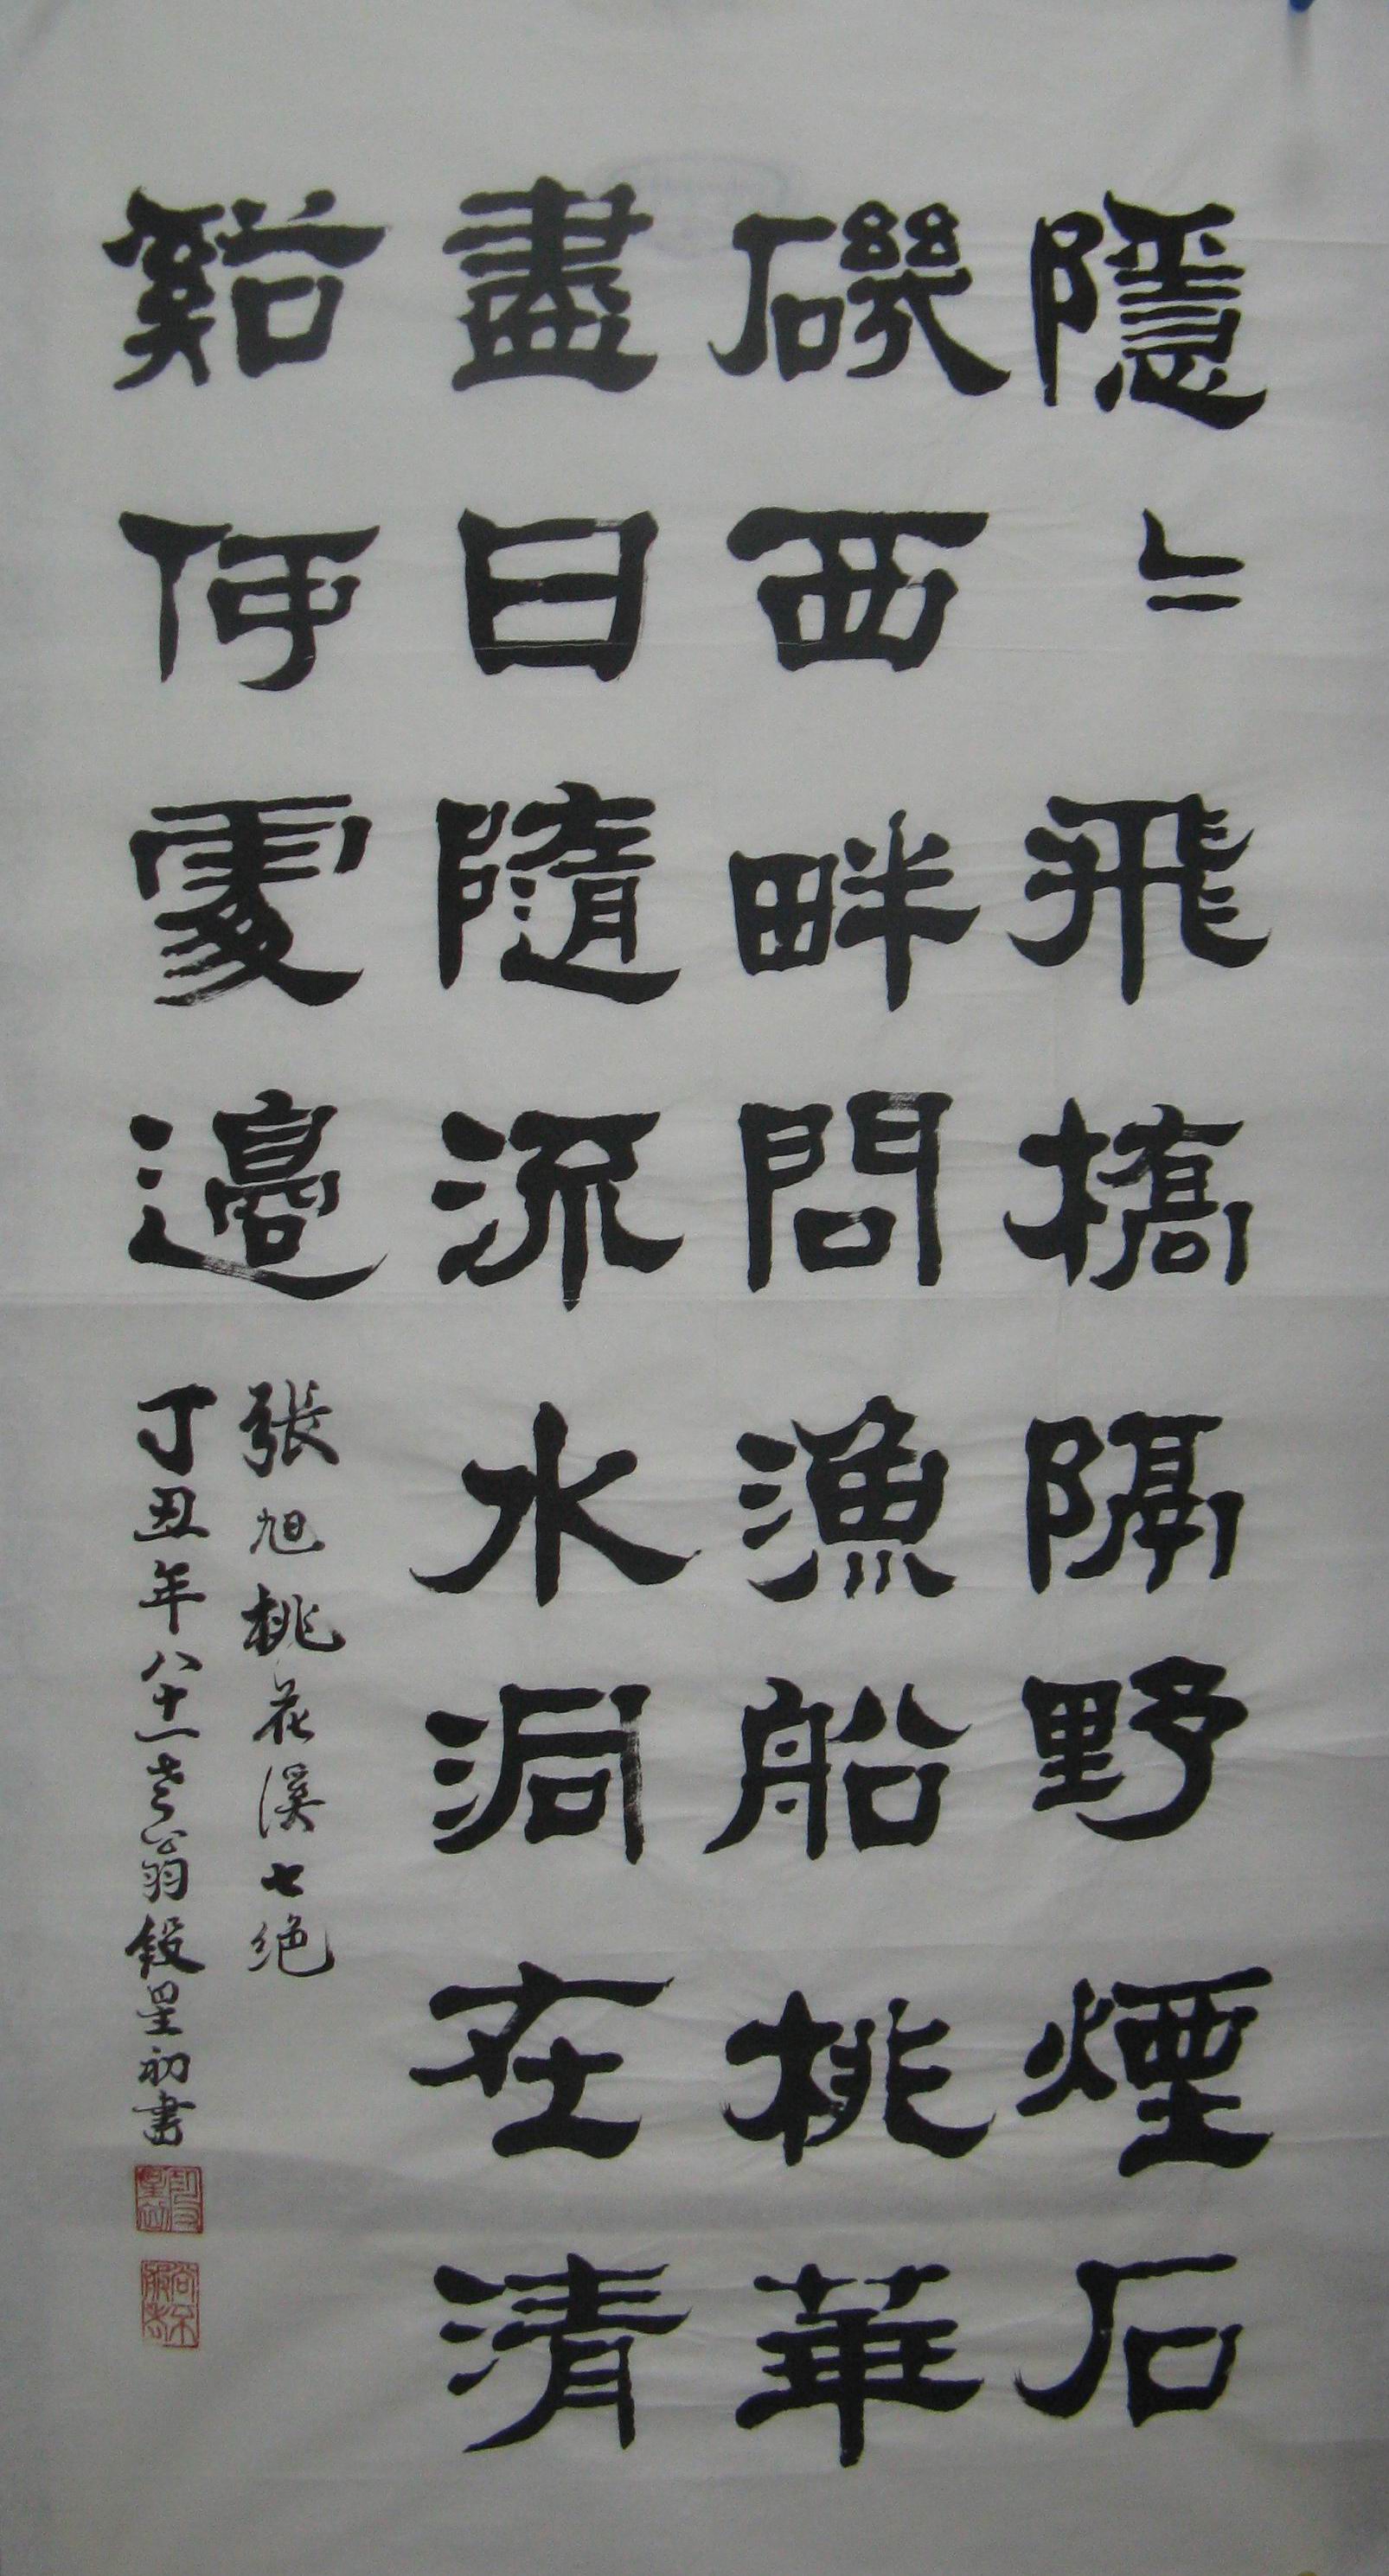 隱〻飛橋隔野煙石
磯西畔問漁船桃華
盡日隨流水洞在清
谿何處邊
張旭桃花溪七絕
丁丑年八十一老翁段星初書